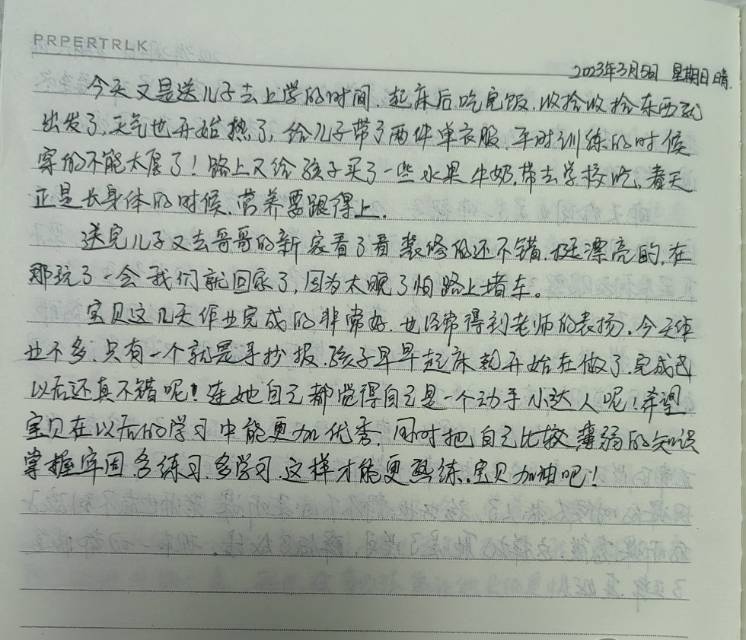 PRPERTRLK
2023年3月5日 星期日 晴
今天又是送儿子去上学的时间,起床后,吃完饭,收拾收拾东西就
出发了,天气也开始热了,给儿子带了两件单衣服,平时训练的时候
穿的不能太厚了!路上又给孩子买了一些水果 牛奶,带去学校吃,春天
正是长身体的时候,营养要跟得上.
送完儿子又去哥哥的新家看了看 装修的还不错,挺漂亮的,在
那玩了一会 我们就回家了,因为太晚了怕路上堵车。
宝贝这几天作业完成的非常好,也经常得到老师的表扬,今天作
业不多,只有一个就是手抄报,孩子早早起床就开始在做了,完成
以后还真不错呢!连她自己都觉得自己是一个动手小达人呢!希望
宝贝在以后的学习中能更加优秀,同时把自己比较薄弱的知识
掌握牢固,多练习,多学习,这样才能更熟练,宝贝加油吧!